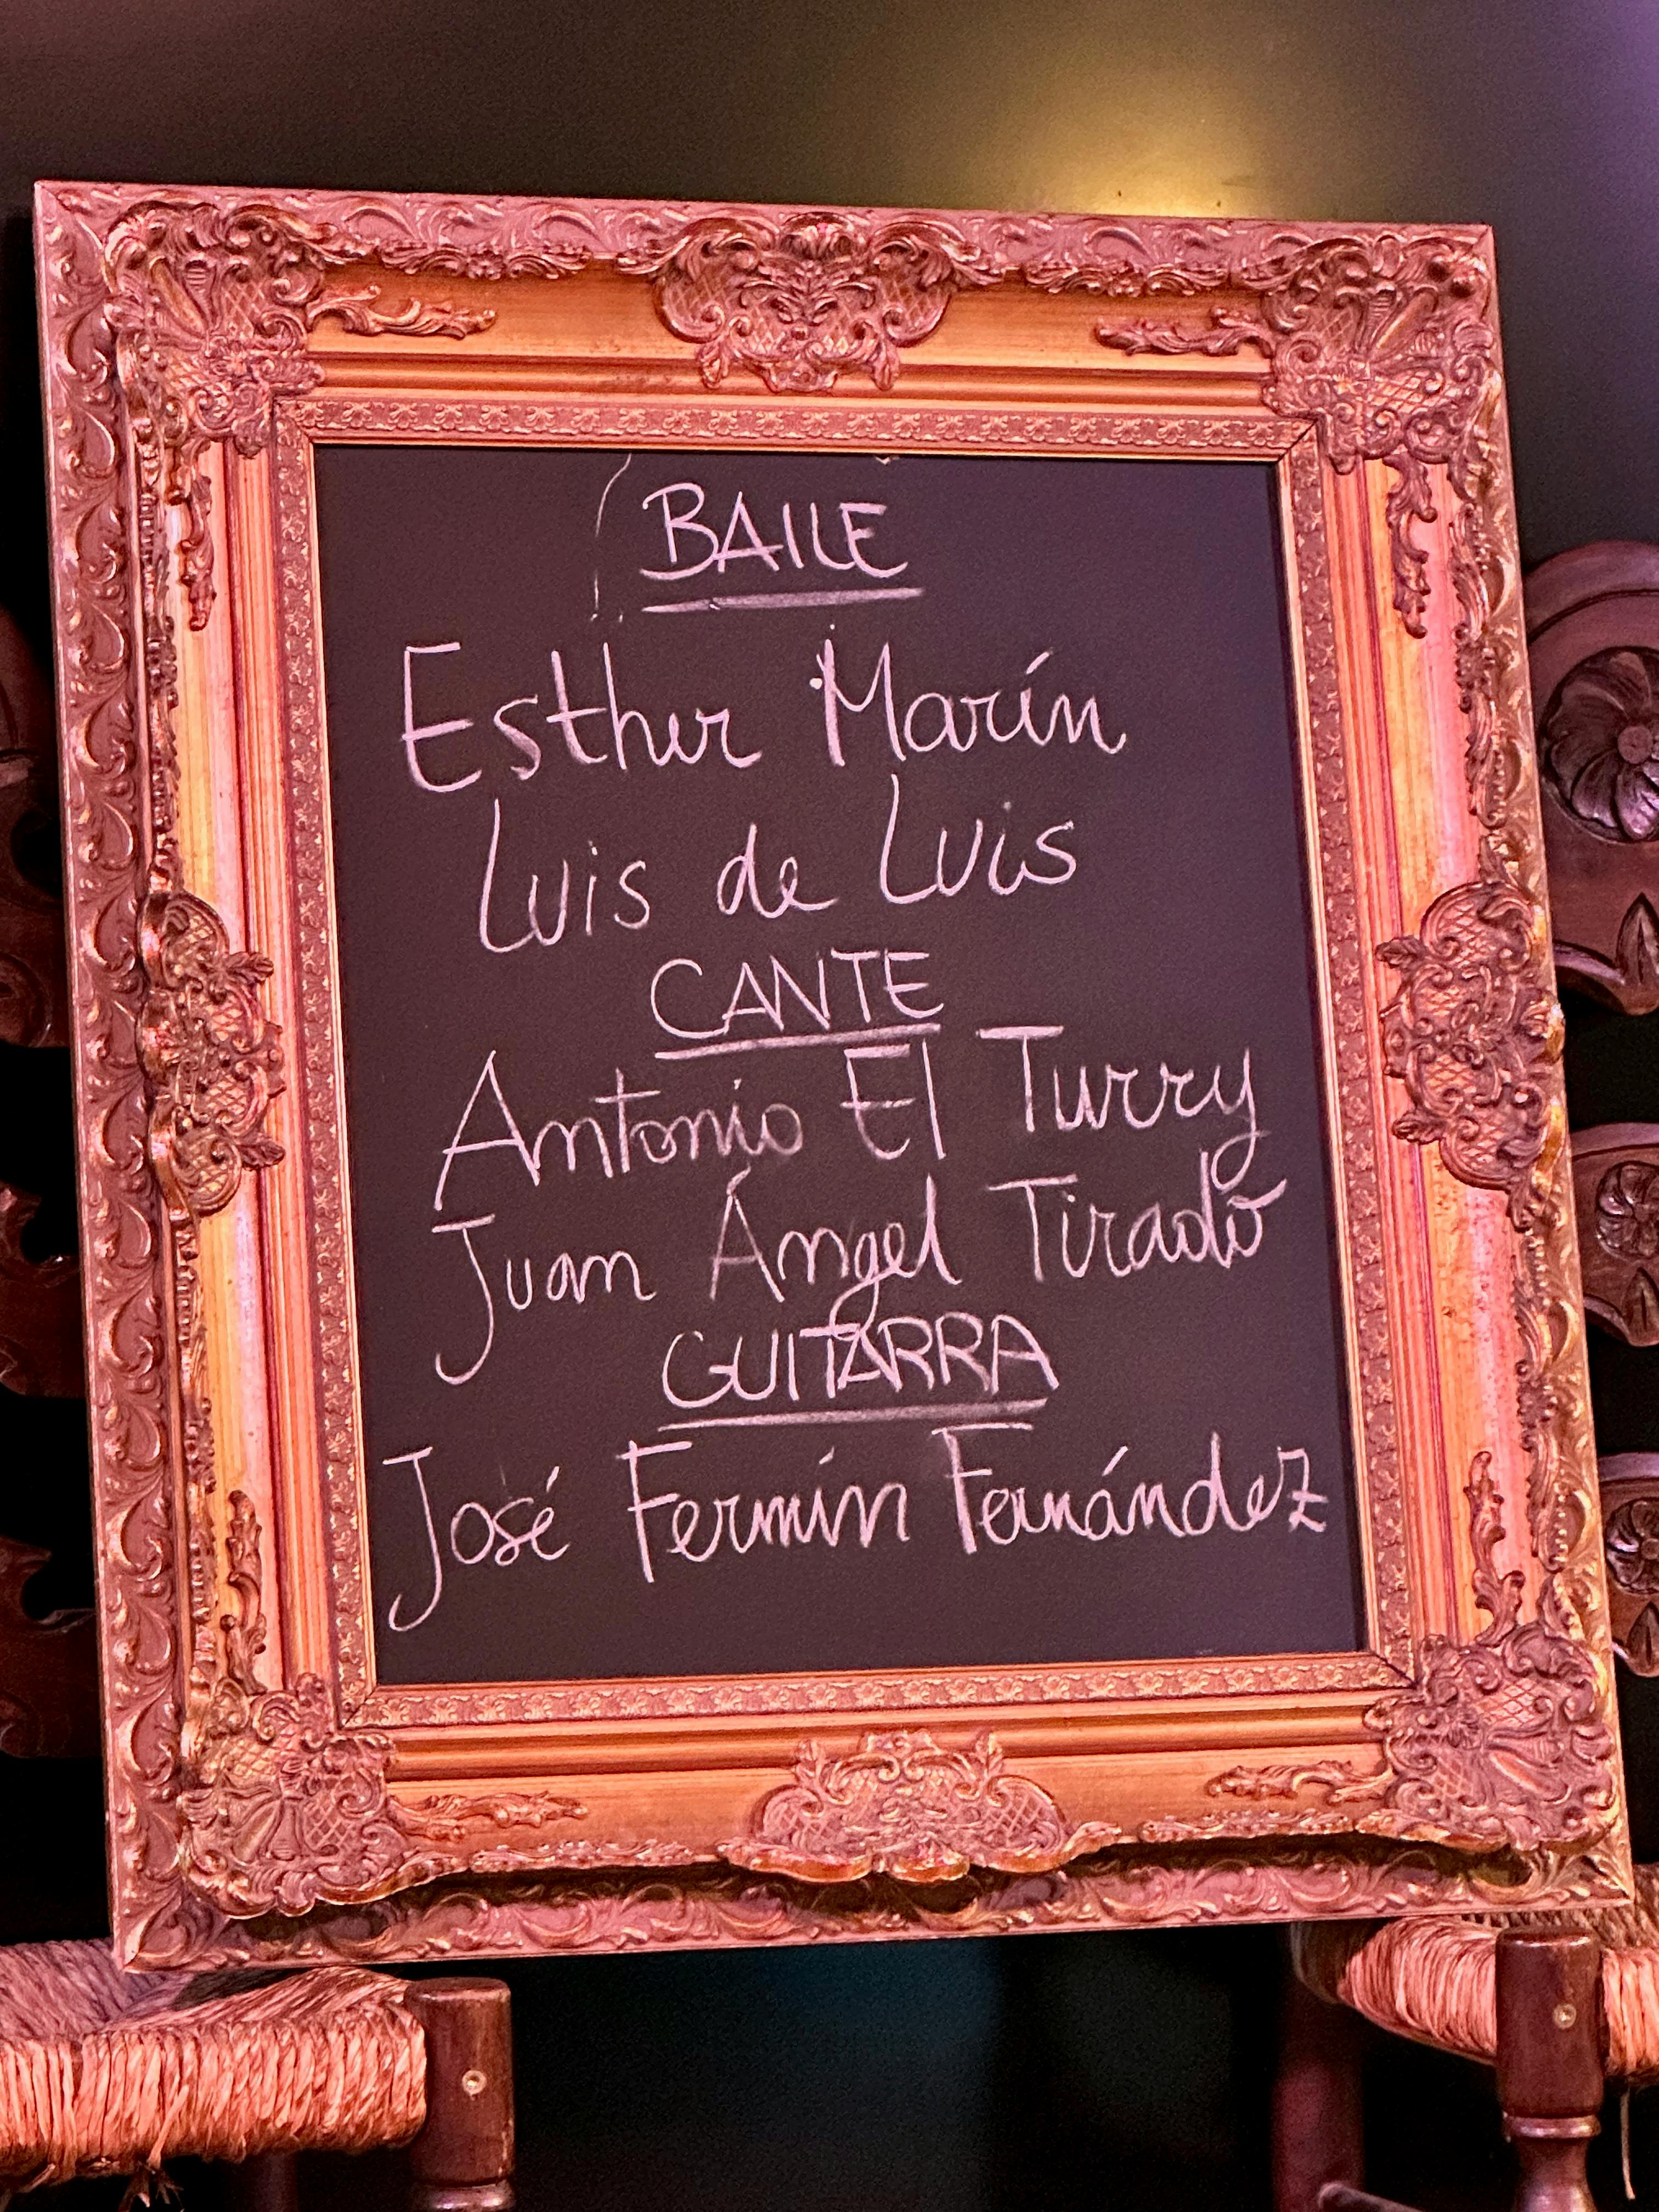 BAILE
Esther Marín
Luis de Luis
CANTE
Antonio El Turry
Juan Ángel Tirado
GUITARRA
José Fermín Fernández